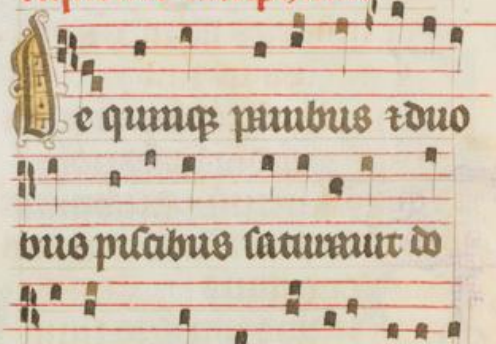 De quinqꝫ panibus ⁊ duo
bus piscibus saturauit do